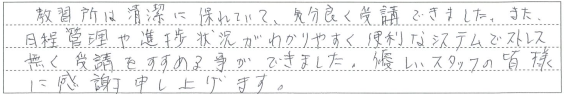 教習所は清潔に保れていて、気分良く受講できました。また、
日程管理や進捗状況がわかりやすく便利なシステムでストレス
無く受講をすすめる事ができました。優しいスタッフの皆様
に感謝申し上げます。